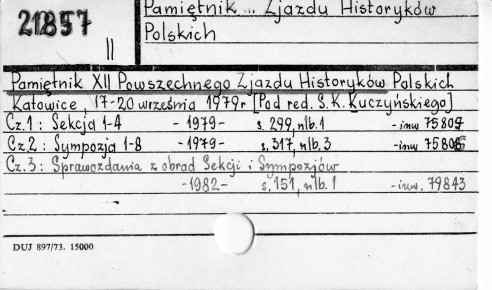 21857
II
Pamiętnik ... Zjazdu Historyków
Polskich
Pamiętnik XII Powszechnego Zjazdu Historyków Polskich
Katowice 17-20 września 1979r [Pod red. S.K.Kuczyńskiego]
Cz.1: Sekcja 1-4 -1979- s. 299, nlb.1 -inw 75807
Cz.2: Sympozja 1-8 -1979- s. 317, nlb.3 -inw
Cz.3: Sprawozdania z obrad Sekcji i Sympozjów
-1982- s. 151, nlb.1 -inw. 79843
DUJ 897/73. 15000